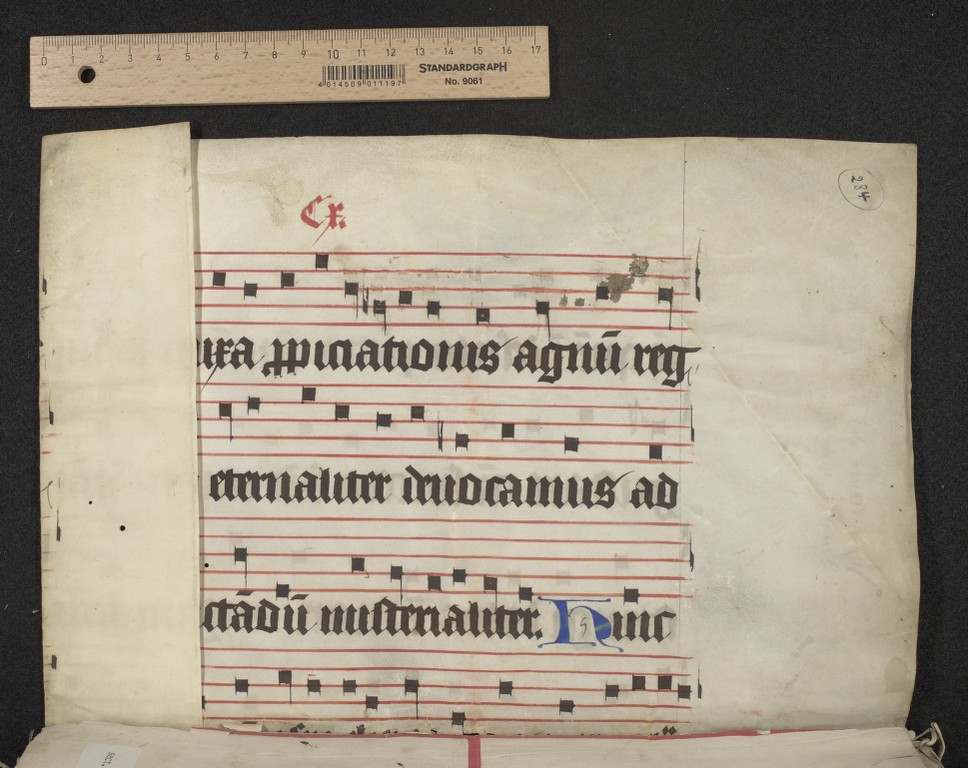 0 1 2 3 4 5 6 7 8 9 10 11 12 13 14 15 16 17
STANDARDGRAPH
No. 9061
4 014509 011197
284
Cx.
uxa ꝓpiciationis agnū reg
eternaliter deuocamus ad
ctādū misterialiter. Hinc